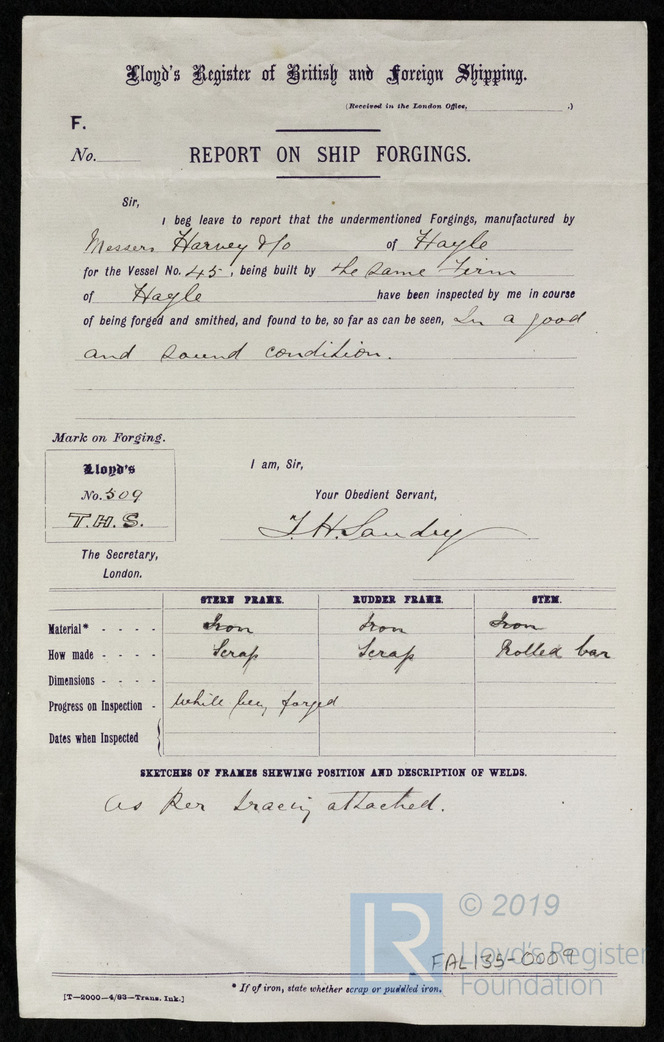 Lloyd's Register of British and Foreign Shipping.
(Received in the London Office, .)
F.
No. REPORT ON SHIP FORGINGS.
Sir,
I beg leave to report that the undermentioned Forgings, manufactured by
Messers Harvey & Co of Hayle
for the Vessel No. 45, being built by the same Firm
of Hayle have been inspected by me in course
of being forged and smithed, and found to be, so far as can be seen, In a good
and sound condition.
Mark on Forging.
Lloyd's
No. 509
T.H.S.
I am, Sir,
Your Obedient Servant,
T.H. Sandry
The Secretary,
London.
STERN FRAME. RUDDER FRAME. STEM.
Material* - - - - Iron Iron Iron
How made - - - - Scrap Scrap Rolled bar
Dimensions - - - -
Progress on Inspection - while being forged
Dates when Inspected
SKETCHES OF FRAMES SHEWING POSITION AND DESCRIPTION OF WELDS.
as Per tracing attached.
© 2019
LR
Lloyd's Register
Foundation
FAL135-0009
* If of iron, state whether scrap or puddled iron.
[T—2000—4/83—Trans. Ink.]